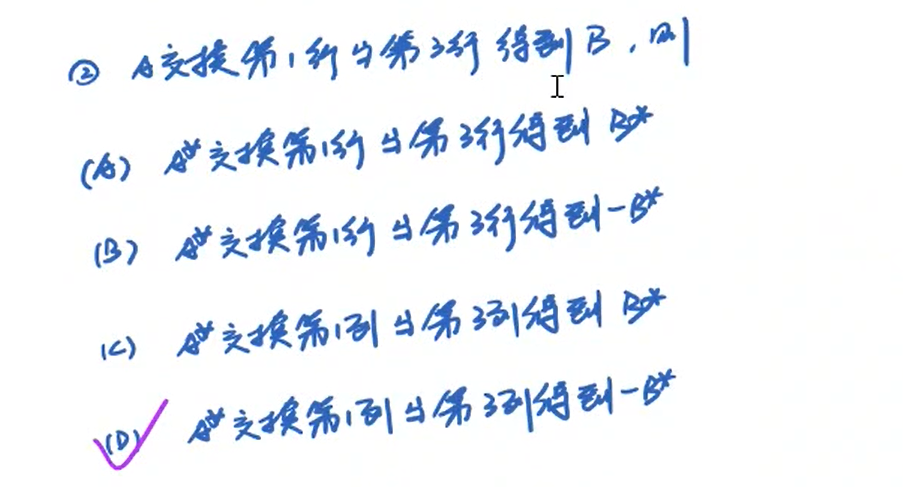 ② A交换第1行与第3行得到B，则
(A) A*交换第1行与第3行得到 B*
(B) A*交换第1行与第3行得到-B*
(C) A*交换第1列与第3列得到 B*
(D) A*交换第1列与第3列得到-B*